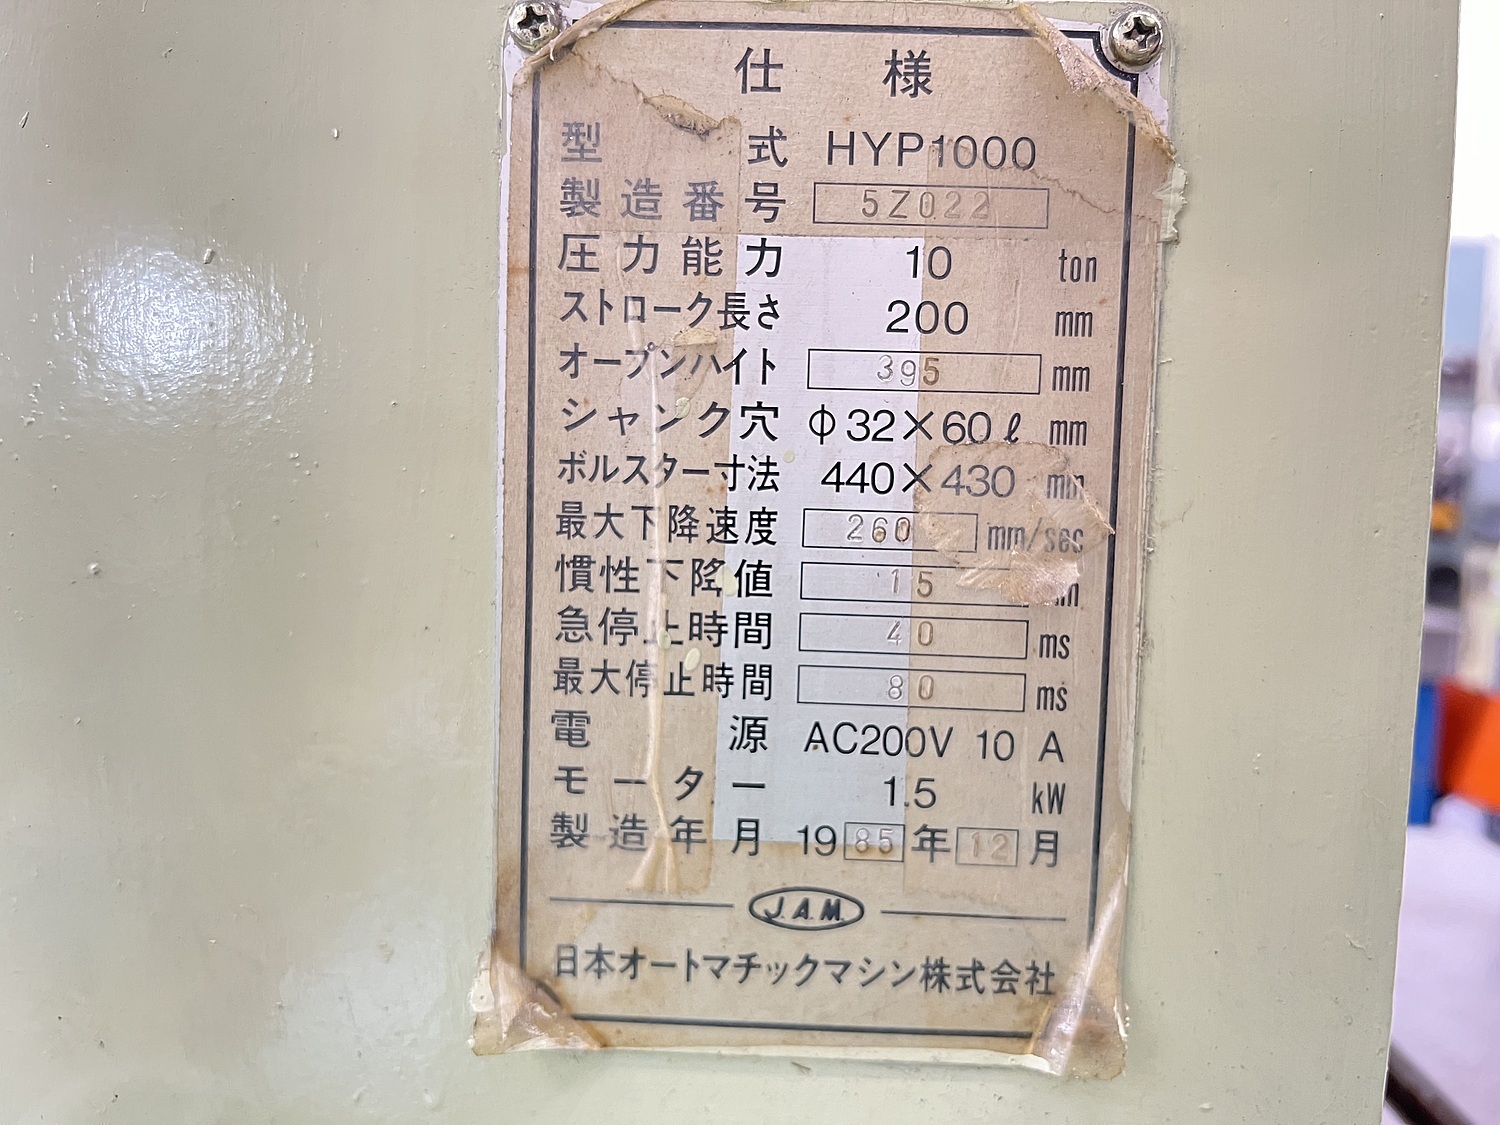 仕様
型式 HYP1000
製造番号 5Z022
圧力能力 10 ton
ストローク長さ 200 mm
オープンハイト 395 mm
シャンク穴 φ32×60ℓ mm
ボルスター寸法 440×430 mm
最大下降速度 260 mm/sec
慣性下降値 15 mm
急停止時間 40 ms
最大停止時間 80 ms
電源 AC200V 10 A
モーター 1.5 kW
製造年月 1985年12月
J.A.M.
日本オートマチックマシン株式会社